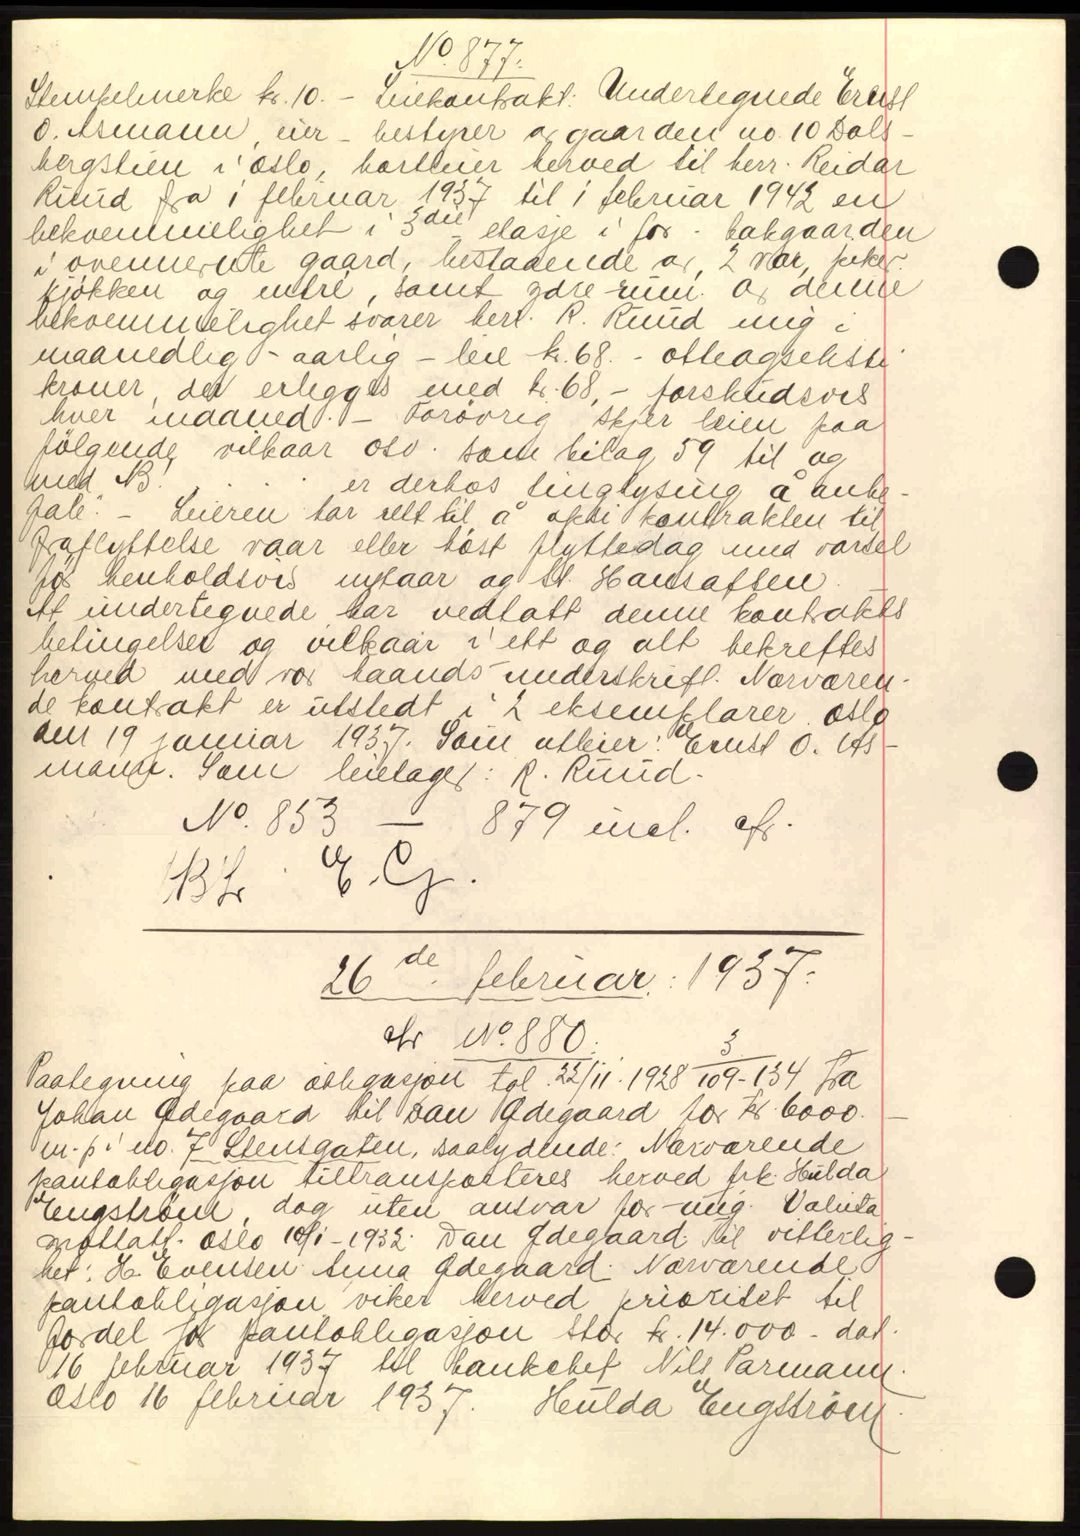 No. 877.
Stempelmerke kr. 10. - Leiekontrakt: Undertegnede Ernst
O. Asmann, eier - bestyrer av gaarden no. 10 Dals-
bergstien i Oslo, bortleier herved til herr. Reidar
Ruud fra 1 februar 1937 til 1 februar 1942 en
bekvemmelighet i 3die etasje i for - bakgaarden
i ovennevnte gaard, bestaaende av, 2 vær,
kjøkken og entré, samt ydre rum. Av denne
bekvemmelighet svarer herr. R. Ruud mig i
maanedlig - aarlig - leie kr. 68. - otteogseksti
kroner, der erlegges med kr. 68,- forskudsvis
hver maaned. - Forøvrig skjer leien paa
følgende vilkaar osv. som bilag 59 til og
med NB! . . . er derhos tinglysing å anbe-
fale. - Leieren har rett til å opsi kontrakten til
fraflyttelse vaar eller høst flyttedag med varsel
før henholdsvis nytaar og St. Hansaften. -
At undertegnede har vedtatt denne kontrakts
betingelser og vilkaar i ett og alt bekreftes
herved med vor haands underskrift. Nærværen-
de kontrakt er utstedt i 2 eksemplarer. Oslo
den 19 januar 1937. Som utleier: Ernst O. As-
mann. Som leietager: R. Ruud.
No. 853 — 879 incl. cfr.
E. G.
26de februar 1937.
cfr No. 880.
Paategning paa obligasjon tgl. 22/11. 1928 3/109-134 fra
Johan Ødegaard til Dan Ødegaard for kr 6000. —
m. p. i no. 7 Stensgaten, saalydende: Nærværende
pantobligasjon tiltransporteres herved frk. Hulda
Engstrøm, dog uten ansvar for mig. Valuta
mottatt. Oslo 10/1 - 1932. Dan Ødegaard. Til vitterlig-
het: H. Evensen Anna Ødegaard. Nærværende
pantobligasjon viker herved prioritet til
fordel for pantobligasjon stor kr. 14.000 - dat.
16 februar 1937 til bankchef Nils Parmann.
Oslo 16 februar 1937. Hulda Engstrøm.